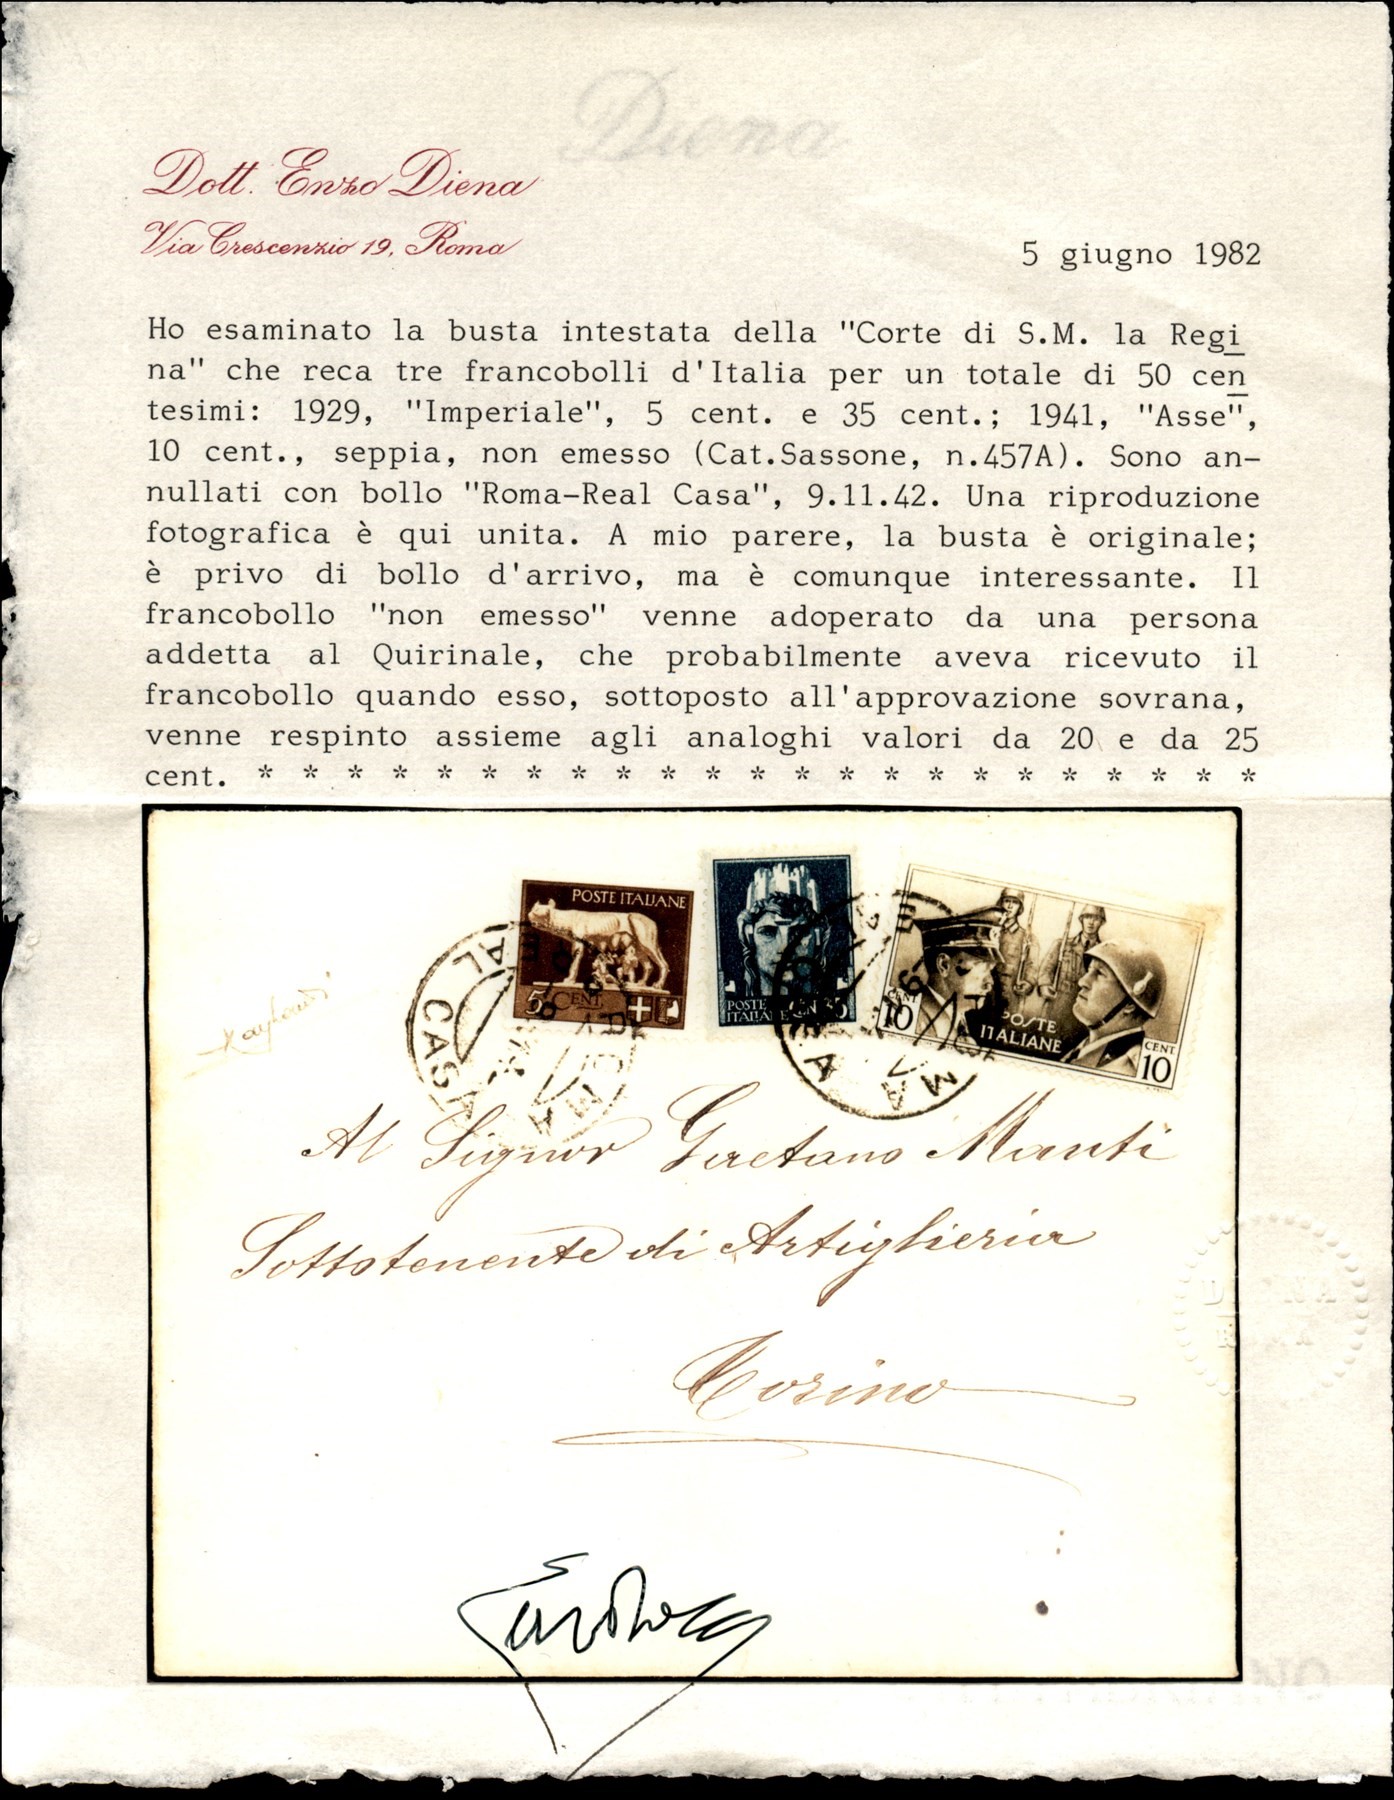 Diena
Dott. Enzo Diena
Via Crescenzio 19, Roma
5 giugno 1982
Ho esaminato la busta intestata della "Corte di S.M. la Regi
na" che reca tre francobolli d'Italia per un totale di 50 cen
tesimi: 1929, "Imperiale", 5 cent. e 35 cent.; 1941, "Asse",
10 cent., seppia, non emesso (Cat.Sassone, n.457A). Sono an-
nullati con bollo "Roma-Real Casa", 9.11.42. Una riproduzione
fotografica è qui unita. A mio parere, la busta è originale;
è privo di bollo d'arrivo, ma è comunque interessante. Il
francobollo "non emesso" venne adoperato da una persona
addetta al Quirinale, che probabilmente aveva ricevuto il
francobollo quando esso, sottoposto all'approvazione sovrana,
venne respinto assieme agli analoghi valori da 20 e da 25
cent. * * * * * * * * * * * * * * * * * * * * * * *
POSTE ITALIANE
5 CENT.
POSTE
ITALIANE
CENT
10
POSTE
ITALIANE
CENT
10
CASA
Al Signor Gaetano Manti
Sottotenente di Artiglieria
Torino